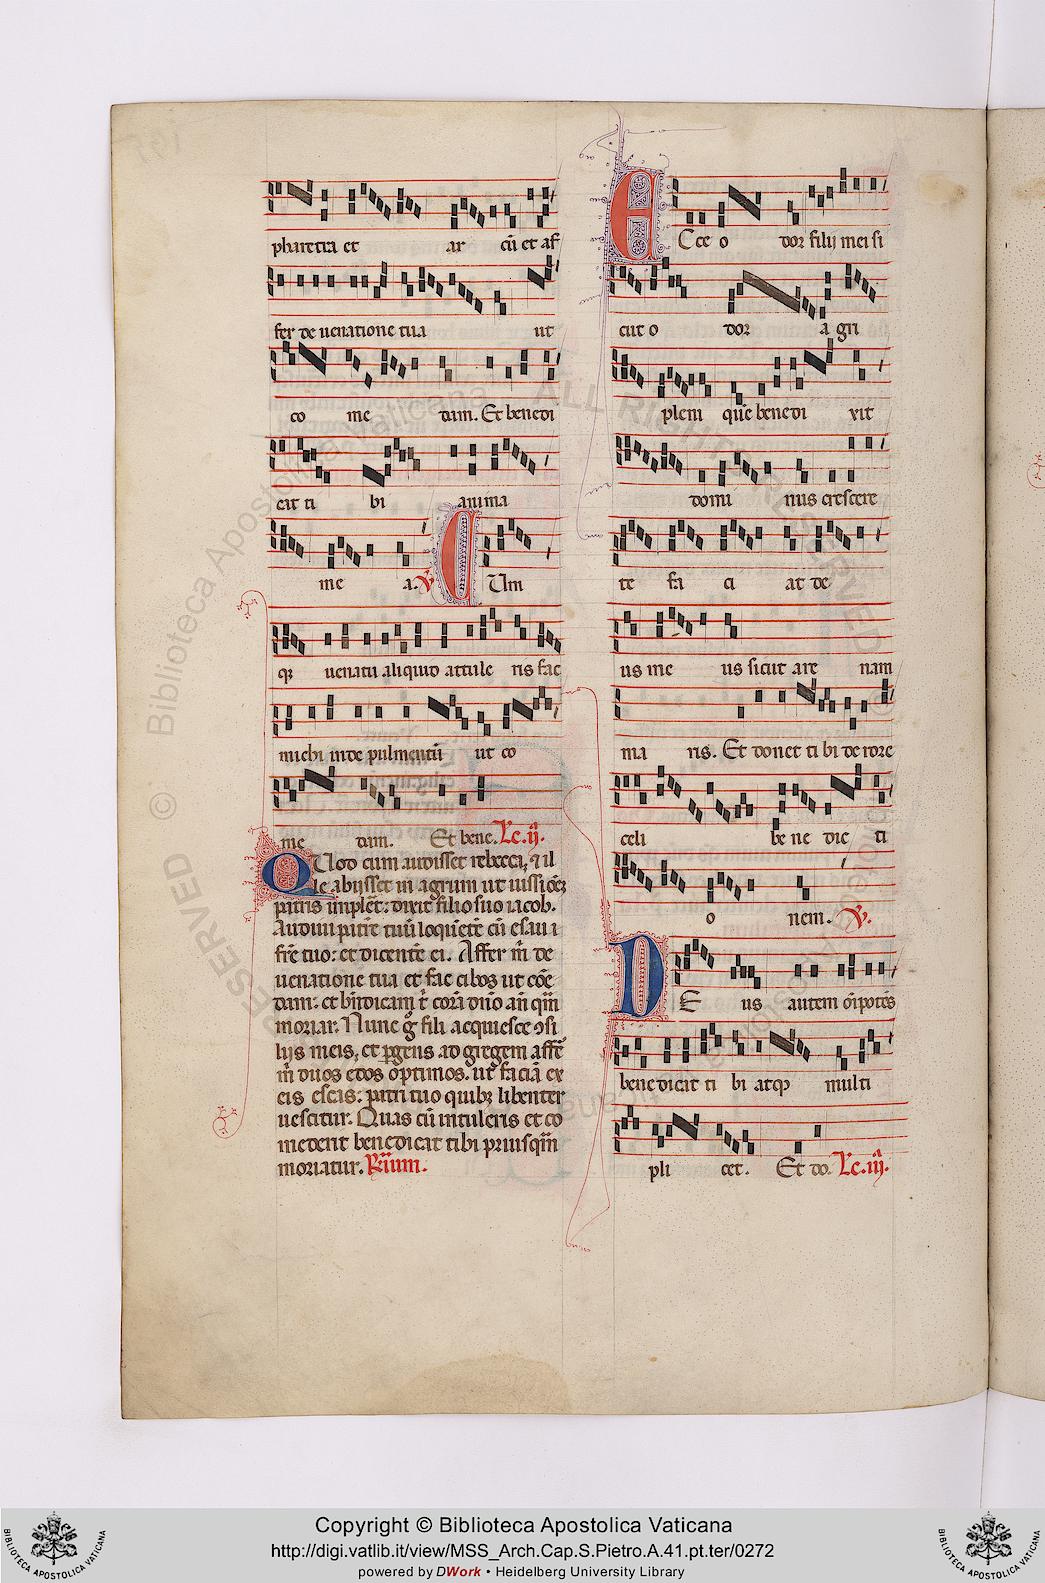 pharetra et ar cū et af
fer de uenatione tua ut
co me dam. Et benedi
cat ti bi anima
me a. V Cum
qꝫ uenatu aliquid attule ris fac
michi inde pulmentū ut co
me dam. Et bene. Lc. ij.
Quod cum audisset rebecca, ⁊ il
le abijsset in agrum ut iussiōeꝫ
pat̄ris implēt: dixit filio suo iacob.
Audiui patrē tuū loquētē cū esau
fr̄e tuo: et dicentē ei. Affer m̄ de
uenatione tua et fac cibos ut com̄e
dam: et bn̄dicam t̄ corā dn̄o an̄ qm̄
moriar. Nunc ḡ fili acquiesce ꝯsi
lijs meis, et ꝑgens ad gregem affer
m̄ duos edos optimos. ut faciā ex
eis escas: patri tuo quibꝫ libenter
uescitur. Quas cū intuleris et co
mederit benedicat tibi priusqm̄
moriatur. Rium.
Ecce o dor filij mei si
cut o dor a gri
pleni quē benedi xit
domi nus crescere
te fa ci at de
us me us sicut are nam
ma ris. Et donet ti bi de rore
celi be ne dic ti
o nem. V.
DE us autem oīpotēs
benedicat ti bi atqꝫ multi
pli cet. Et do. Lc. iij.
© Biblioteca Apostolica Vaticana ALL RIGHTS RESERVED
Copyright © Biblioteca Apostolica Vaticana
http://digi.vatlib.it/view/MSS_Arch.Cap.S.Pietro.A.41.pt.ter/0272
powered by DWork • Heidelberg University Library
BIBLIOTECA APOSTOLICA VATICANA
BIBLIOTECA APOSTOLICA VATICANA